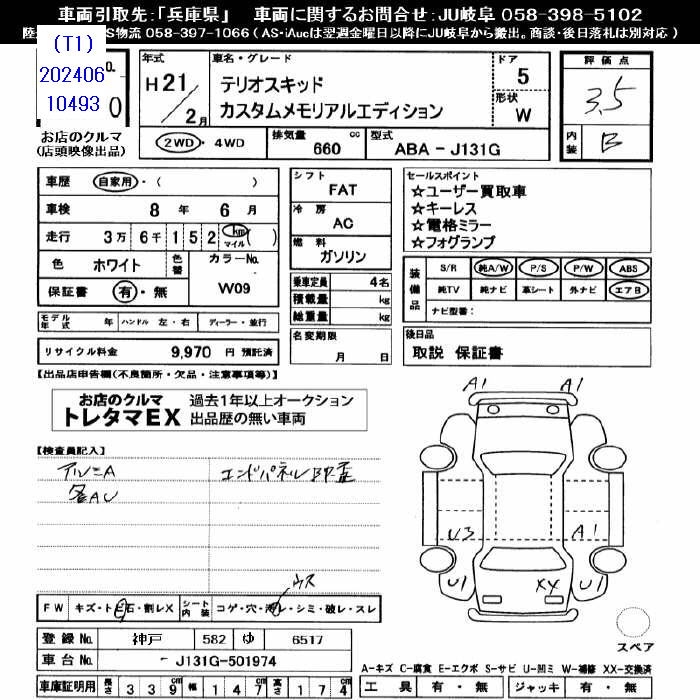 車両引取先:「兵庫県」 車両に関するお問合せ:JU岐阜 058-398-5102
S物流 058-397-1066 ( AS・iAucは翌週金曜日以降にJU岐阜から搬出。商談・後日落札は別対応 )
(T1)
202406
10493
お店のクルマ
(店頭映像出品)
年式 車名・グレード ドア 評価点
H21/2月 テリオスキッド 5 3.5
カスタムメモリアルエディション 形状 W
2WD・4WD 排気量 660 cc 型式 ABA - J131G 内装 B
車歴 自家用・( )
車検 8 年 6 月
走行 3万 6千 1 5 2 km マイル ( )
色 ホワイト 色替 カラーNo. W09
保証書 有・無
モデル年式 年 ハンドル 左・右 ディーラー・並行
リサイクル料金 9,970 円 預託済
シフト FAT
冷房 AC
燃料 ガソリン
乗車定員 4名
積載量 kg
総重量 kg
名変期限
月 日
セールスポイント
☆ユーザー買取車
☆キーレス
☆電格ミラー
☆フォグランプ
装備品 S/R 純A/W P/S P/W ABS
純TV 純ナビ 革シート 外ナビ エアB
ナビ型番:
後日品
取説 保証書
【出品店申告欄(不良箇所・欠品・注意事項等)】
お店のクルマ 過去1年以上オークション
トレタマEX 出品歴の無い車両
【検査員記入】
アルミA エンドパネルBP歪
各AU
ウス
FW キズ・トビ石・割レX シート内装 コゲ・穴・汚レ・シミ・破レ・スレ
登録No. 神戸 582 ゆ 6517
車台No. - J131G-501974
車庫証明用 長さ 3 3 9 cm 幅 1 4 7 cm 高さ 1 7 4 cm
A1 A1
U3 A1
U1 XX U1
スペア
A-キズ C-腐食 E-エクボ S-サビ U-凹ミ W-補修 XX-交換済
工具 有・無 ジャッキ 有・無